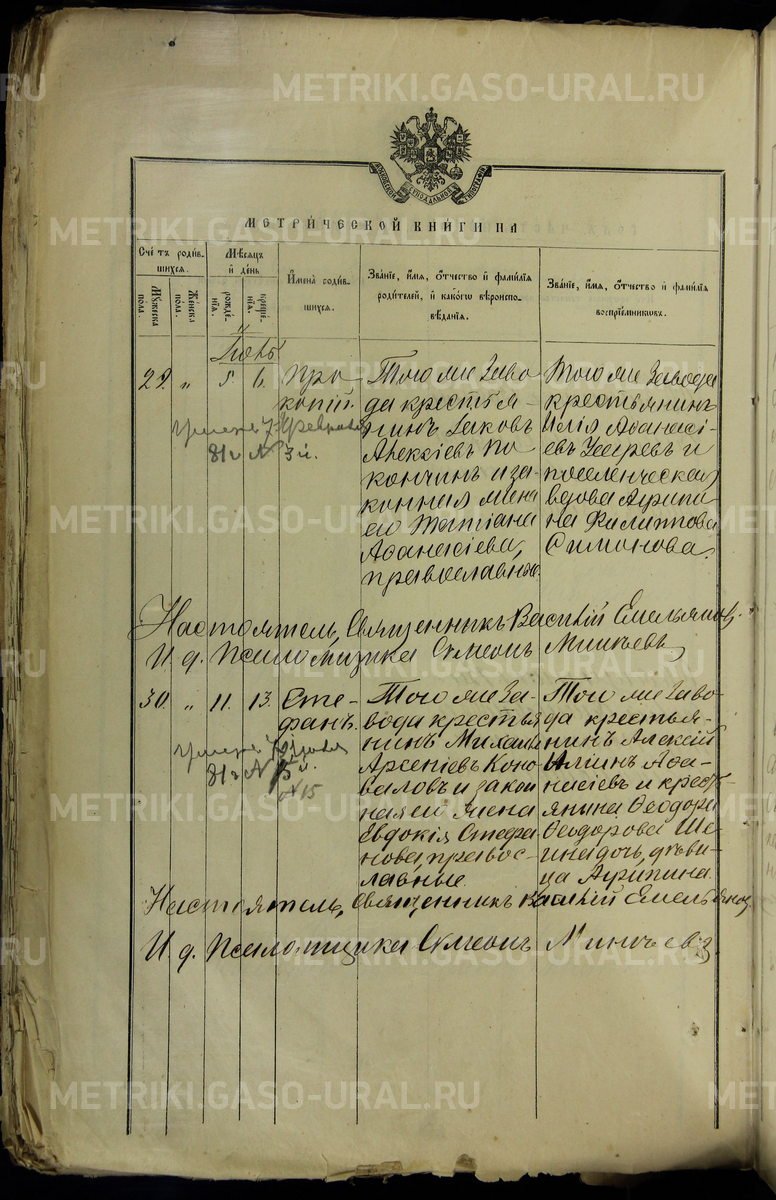 METRIKI.GASO-URAL.RU
МЕТРИЧЕСКОЙ КНИГИ НА
Счетъ родив-
шихся.
Мужеска пола.
Женска пола.
Мѣсяцъ и день
рожде-
нія.
креще-
нія.
Имена родив-
шихся.
Званіе, имя, отчество и фамилія
родителей, и какого вѣроиспо-
вѣданія.
Званіе, имя, отчество и фамилія
воспріемниковъ.
29. „ 5 6.
Про
копій.
умеръ 7 Февраля
81 г № 3 й.
Того же Заво
да крестья-
нинъ Іаковъ
Алексіевъ По
кончинъ и за-
конная жена
его Татіана
Аѳанасіева,
православные.
Того же Завода
крестьянинъ
Илія Аѳанасі-
евъ и
поселенческая
вдова Агрипи
на Филиппова
Симонова.
Настоятель, Священникъ Василій Емельяновъ.
И. д. Псаломщика Симеонъ
30. „ 11. 13.
Сте-
фанъ.
умеръ
81 г №
№ 15
Того же За-
вода крестья
нинъ Михаил
Арсеніевъ Коно
валовъ и закон
ная его жена
Евдокія Стефа
нова, правос-
лавные.
Того же Заво-
да крестья-
нинъ Алексій
Аѳа-
насіевъ и крест
янина Ѳеодора
Ѳеодорова Ше-
дочь, дѣви-
ца Агрипина.
Настоятель, Священникъ Василій Емельяновъ.
И. д. Псаломщика Симеонъ